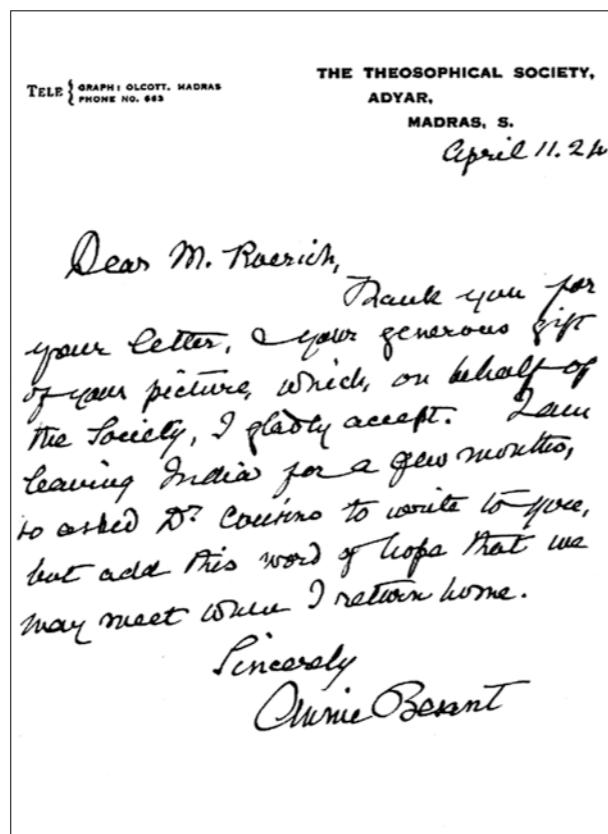 TELE { GRAPH: OLCOTT. MADRAS
PHONE NO. 663
THE THEOSOPHICAL SOCIETY,
ADYAR,
MADRAS, S.
April 11. 24
Dear M. Roerich,
Thank you for
your letter, & your generous gift
of your picture, which, on behalf of
the Society, I gladly accept. I am
leaving India for a few months,
so asked Dr. Cousins to write to you,
but add this word of hope that we
may meet when I return home.
Sincerely
Annie Besant